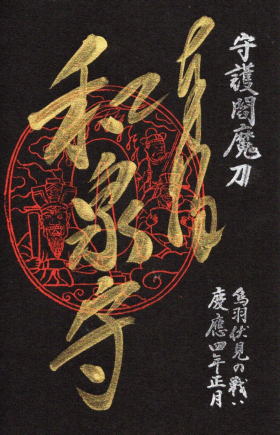 守護閻魔刀
和泉守
鳥羽伏見の戦い
慶應四年正月